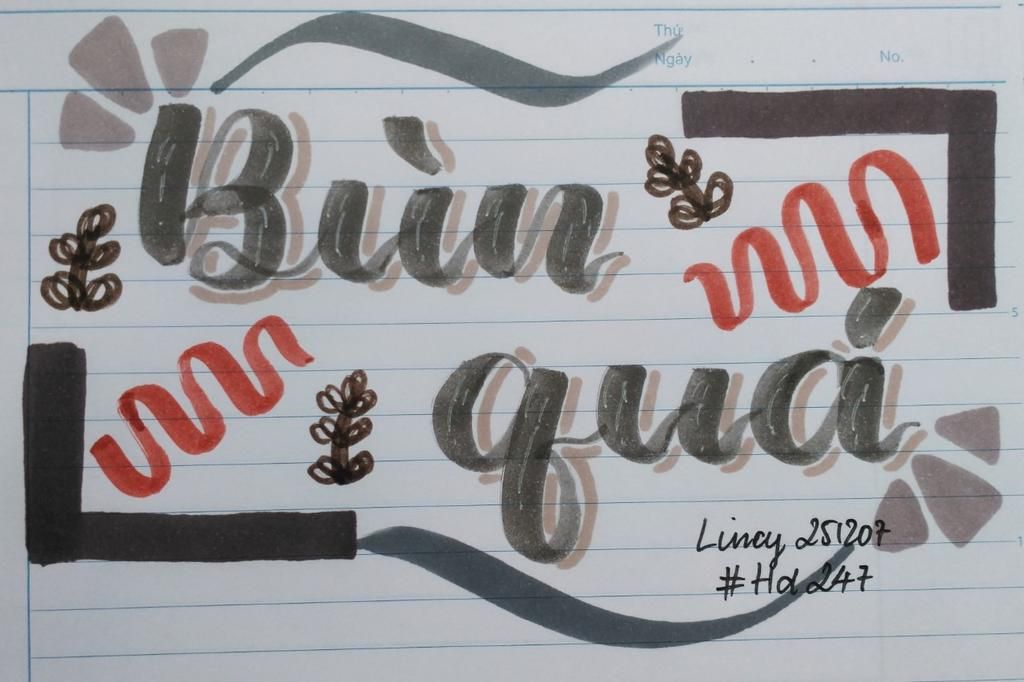 Thứ
Ngày
No.
Bùn
quá
5
1
Lincy 251207
#Hd 247